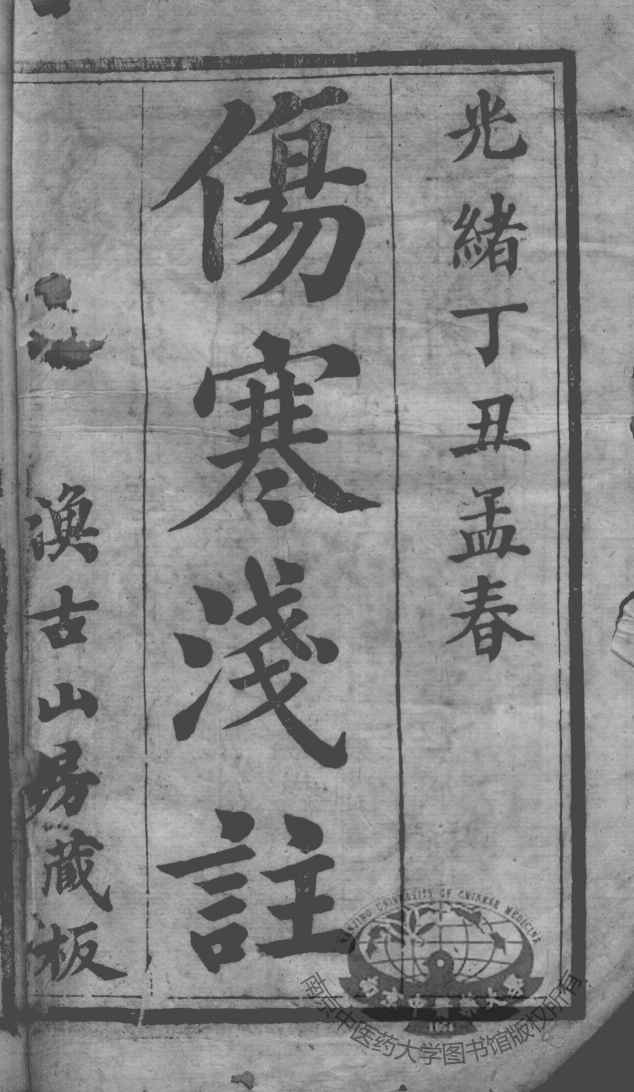 光緒丁丑孟春
傷寒淺註
漁古山房藏板
NANJING UNIVERSITY OF CHINESE MEDICINE
南京中醫药大学
1954
南京中医药大学图书馆版权所有